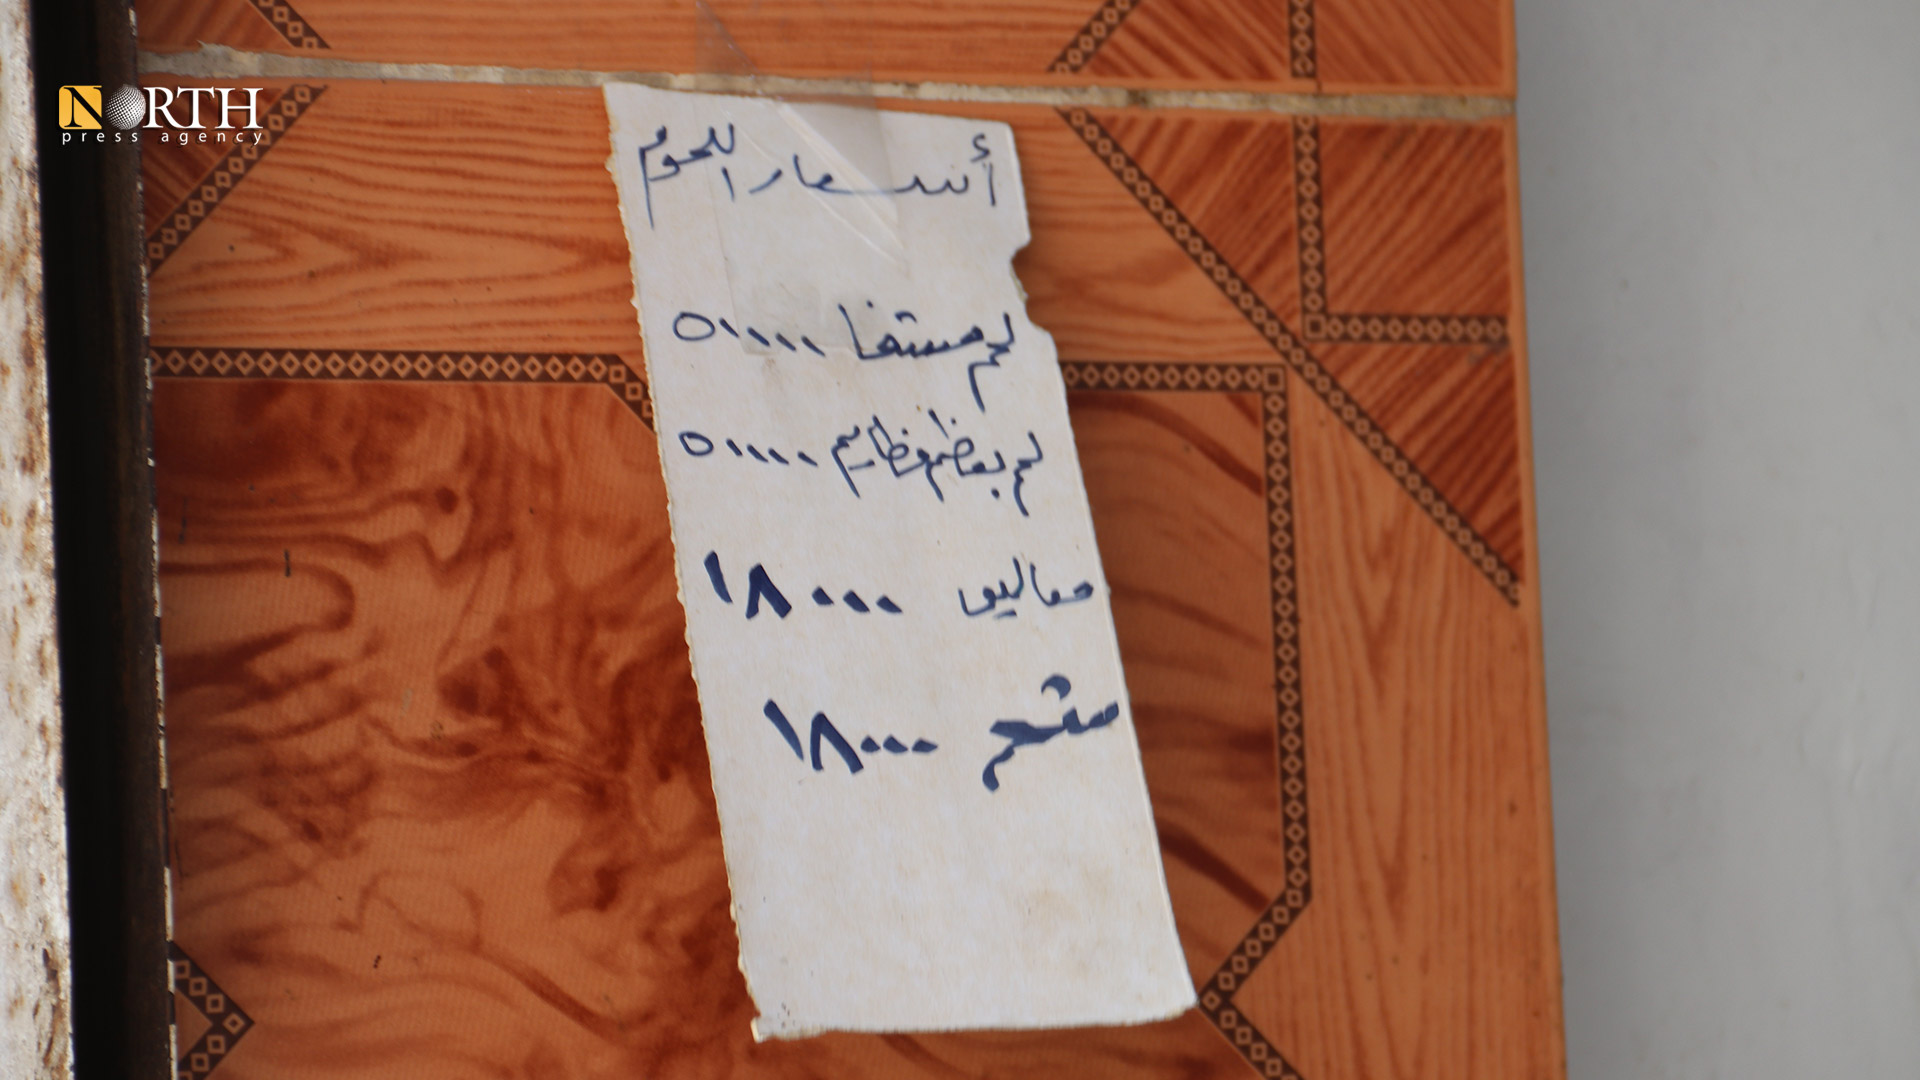 NORTH
press agency
أسعار اللحوم
لحم مستفا ٥٠٠٠٠
لحم بعضم ٥٠٠٠٠
معاليق ١٨٠٠٠
شحم ١٨٠٠٠